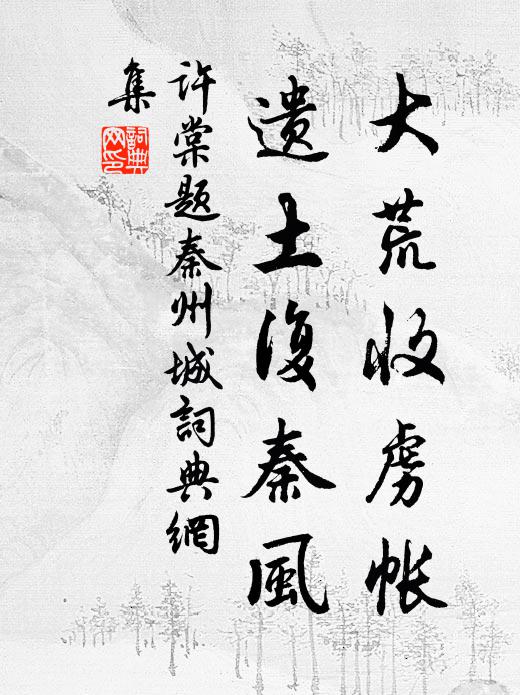 大荒收虏帐
遗土复秦風
许棠题秦州城詞典網
集
詞典
网印